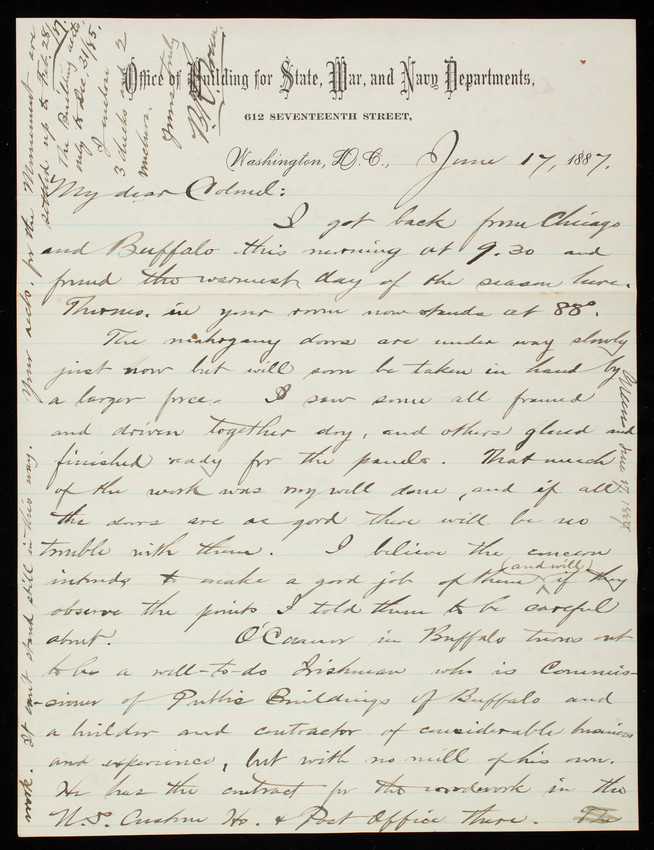 Office of Building for State, War, and Navy Departments,
612 SEVENTEENTH STREET,
Washington, D.C., June 17, 1887.
My dear Colonel:
I got back from Chicago
and Buffalo this morning at 9.30 and
found the warmest day of the season here.
Thermo. in your room now stands at 88°.
The mahogany doors are under way slowly
just now but will soon be taken in hand by
a larger force. I saw some all framed
and driven together dry, and others glued and
finished ready for the panels. That much
of the work was very well done, and if all
the doors are as good there will be no
trouble with them. I believe the concern
intends to make a good job of them (and will) if they
observe the points I told them to be careful
about. O'Connor in Buffalo turns out
to be a well-to-do Irishman who is Commis-
sioner of Public Buildings of Buffalo and
a builder and contractor of considerable business
and experience, but with no mill of his own.
He has the contract for the woodwork in the
U.S. Custom Ho. & Post Office there. The
work. It can't stand still in this way. Your accts. for the Monument are
settled up to Feb. 28/87.
The Building accts.
only to Dec. 31/85.
I enclose
3 checks and 2
vouchers.
Yours truly
B. R. Green
Green June 17 1887